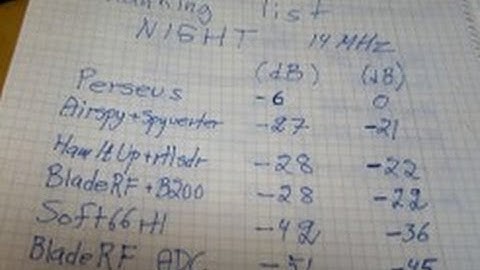 Ranking list
NIGHT 14 MHz
(dB) (dB)
Perseus -6 0
Airspy+Spyverter -27 -21
Ham It Up+rtlsdr -28 -22
BladeRF+B200 -28 -22
Soft66rtl -42 -36
BladeRF ADC -51 -45